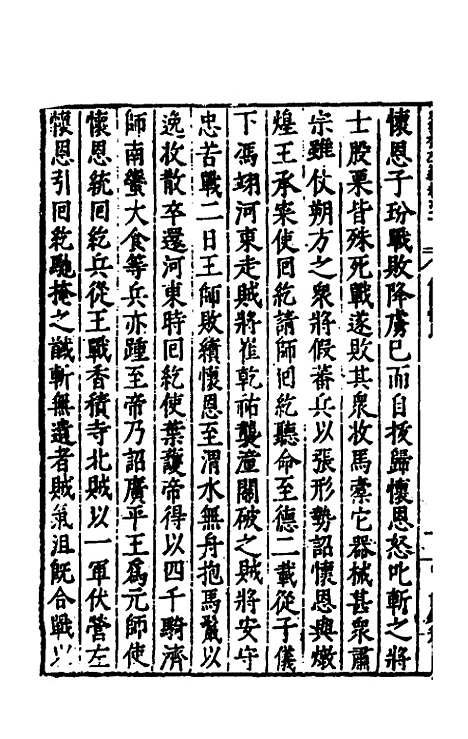 懷恩子玢戰敗降虜已而自拔歸懷恩怒叱斬之將
士股栗皆殊死戰遂敗其衆收馬槖它器械甚衆肅
宗雖仗朔方之衆將假蕃兵以張形勢詔懷恩與燉
煌王承寀使回紇請師回紇聽命至德二載從子儀
下馮翊河東走賊將崔乾祐襲潼關破之賊將安守
忠苦戰二日王師敗績懷恩至渭水無舟抱馬鬣以
逸收散卒還河東時回紇使葉護帝得以四千騎濟
師南蠻大食等兵亦踵至帝乃詔廣平王爲元師使
懷恩統回紇兵從王戰香積寺北賊以一軍伏營左
懷恩引回紇馳掩之馘斬無遺者賊氣沮旣合戰以